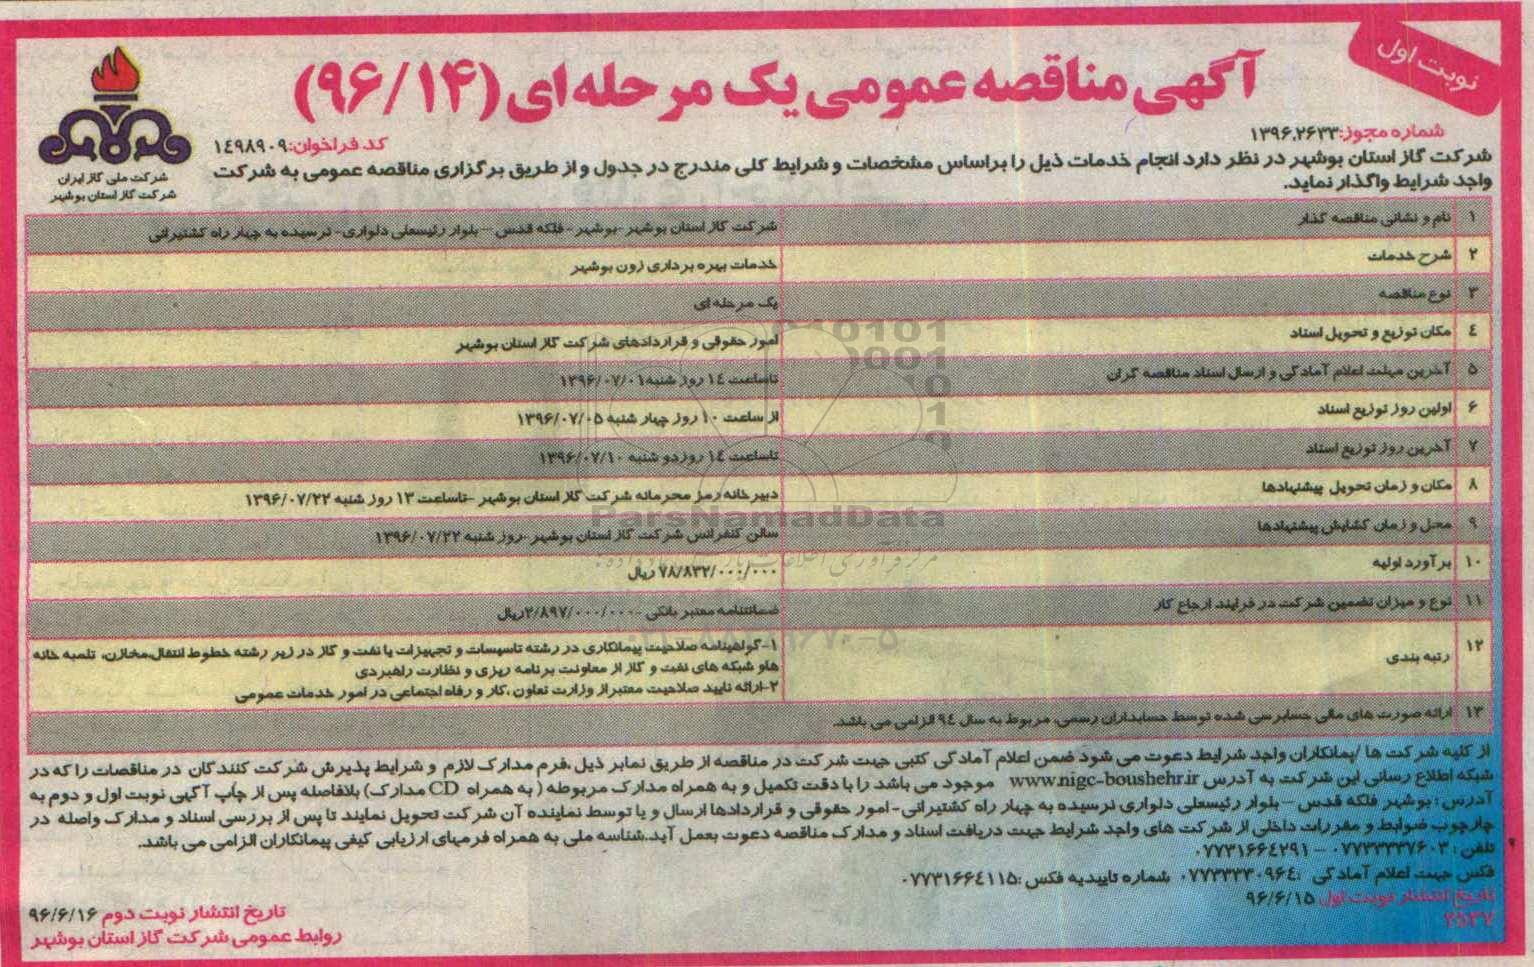 نوبت اول
آگهی مناقصه عمومی یک مرحله ای (۹۶/۱۴)
شماره مجوز:۱۳۹۶.۲۶۳۳
کد فراخوان:۱٤۹۸۹۰۹
شرکت ملی گاز ایران
شرکت گاز استان بوشهر
شرکت گاز استان بوشهر در نظر دارد انجام خدمات ذیل را براساس مشخصات و شرایط کلی مندرج در جدول و از طریق برگزاری مناقصه عمومی به شرکت
واجد شرایط واگذار نماید.
۱ نام و نشانی مناقصه گذار شرکت گاز استان بوشهر -بوشهر - فلکه قدس – بلوار رئیسعلی دلواری- نرسیده به چهار راه کشتیرانی
۲ شرح خدمات خدمات بهره برداری زون بوشهر
۳ نوع مناقصه یک مرحله ای
٤ مکان توزیع و تحویل اسناد امور حقوقی و قراردادهای شرکت گاز استان بوشهر
۵ آخرین مهلت اعلام آمادگی و ارسال اسناد مناقصه گران تاساعت ۱٤ روز شنبه ۱۳۹۶/۰۷/۰۱
۶ اولین روز توزیع اسناد از ساعت ۱۰ روز چهار شنبه ۱۳۹۶/۰۷/۰۵
۷ آخرین روز توزیع اسناد تاساعت ۱٤ روزدو شنبه ۱۳۹۶/۰۷/۱۰
۸ مکان و زمان تحویل پیشنهادها دبیرخانه رمز محرمانه شرکت گاز استان بوشهر –تاساعت ۱۳ روز شنبه ۱۳۹۶/۰۷/۲۲
۹ محل و زمان گشایش پیشنهادها سالن کنفرانس شرکت گاز استان بوشهر -روز شنبه ۱۳۹۶/۰۷/۲۲
۱۰ برآورد اولیه ۷۸/۸۳۲/۰۰۰/۰۰۰ ریال
۱۱ نوع و میزان تضمین شرکت در فرایند ارجاع کار ضمانتنامه معتبر بانکی -۲/۸۹۷/۰۰۰/۰۰۰ریال
۱۲ رتبه بندی ۱-گواهینامه صلاحیت پیمانکاری در رشته تاسیسات و تجهیزات یا نفت و گاز در زیر رشته خطوط انتقال،مخازن، تلمبه خانه
هاو شبکه های نفت و گاز از معاونت برنامه ریزی و نظارت راهبردی
۲-ارائه تایید صلاحیت معتبراز وزارت تعاون ،کار و رفاه اجتماعی در امور خدمات عمومی
۱۳ ارائه صورت های مالی حسابرسی شده توسط حسابداران رسمی، مربوط به سال ۹٤ الزامی می باشد.
از کلیه شرکت ها /پیمانکاران واجد شرایط دعوت می شود ضمن اعلام آمادگی کتبی جهت شرکت در مناقصه از طریق نمابر ذیل ،فرم مدارک لازم و شرایط پذیرش شرکت کنندگان در مناقصات را که در
شبکه اطلاع رسانی این شرکت به آدرس www.nigc-boushehr.ir موجود می باشد را با دقت تکمیل و به همراه مدارک مربوطه ( به همراه CD مدارک) بلافاصله پس از چاپ آگهی نوبت اول و دوم به
آدرس : بوشهر فلکه قدس – بلوار رئیسعلی دلواری نرسیده به چهار راه کشتیرانی- امور حقوقی و قراردادها ارسال و یا توسط نماینده آن شرکت تحویل نمایند تا پس از بررسی اسناد و مدارک واصله در
چارچوب ضوابط و مقررات داخلی از شرکت های واجد شرایط جهت دریافت اسناد و مدارک مناقصه دعوت بعمل آید.شناسه ملی به همراه فرمهای ارزیابی کیفی پیمانکاران الزامی می باشد.
تلفن : ۰۷۷۳۳۳۳۷۶۰۳ – ۰۷۷۳۱۶۶٤۲۹۱
فکس جهت اعلام آمادگی :۰۷۷۳۳۳۳۰۹۶٤ شماره تاییدیه فکس :۰۷۷۳۱۶۶٤۱۱۵
تاریخ انتشار نوبت اول ۹۶/۶/۱۵
تاریخ انتشار نوبت دوم ۹۶/۶/۱۶
۲۵۳۷
روابط عمومی شرکت گاز استان بوشهر
ParsNamadData